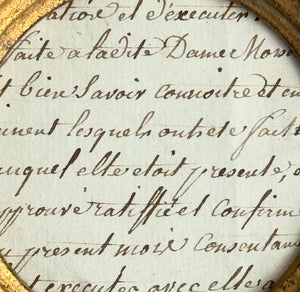 ration et d'executer
faite a ladite Dame Mor
bien savoir connoitre et en
nnent lesquels ont eté fait
auquel elle etoit presente, e
pprouvé ratiffié et confirm
u present mois consentan
executer avec elle a